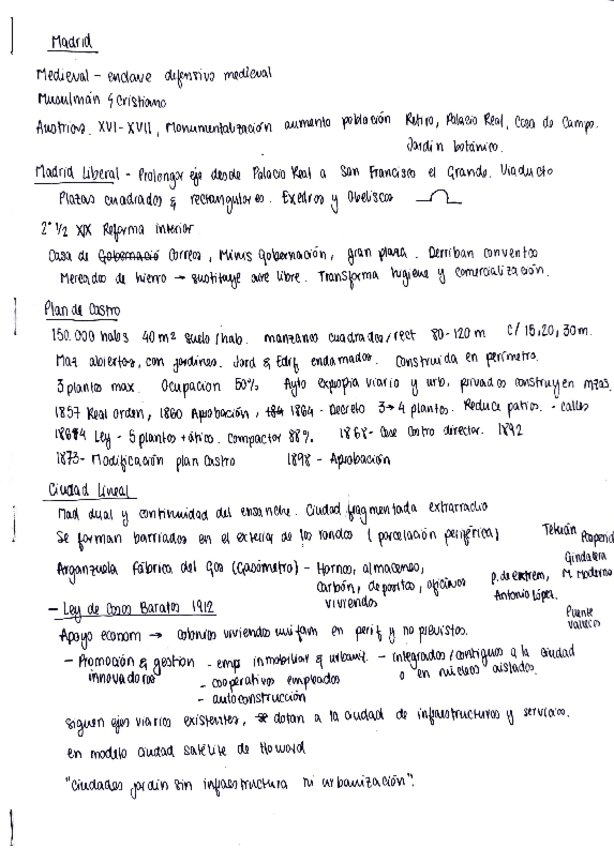 Madrid
Medieval - enclave defensivo medieval
Musulmán y Cristiano
Austrias. XVI-XVII, Monumentalización aumento población Retiro, Palacio Real, Casa de Campo.
Jardín botánico.
Madrid Liberal - Prolongar eje desde Palacio Real a San Francisco el Grande. Viaducto
Plazas cuadradas y rectangulares. Exedras y Obeliscos
2ª 1/2 XIX Reforma interior
Casa de Gobernació Correos, Minis Gobernación, gran plaza. Derriban conventos
Mercados de hierro → sustituye aire libre. Transforma higiene y comercialización.
Plan de Castro
150.000 habs 40 m² suelo/hab. manzanas cuadradas/rect 80-120 m c/ 15, 20, 30m.
Maz abiertas, con jardines. Jard y Edif endamados. Construida en perímetro.
3 plantas max. Ocupacion 50% Ayto expropia viario y urb, privados construyen mzas.
1857 Real orden, 1860 Aprobación, 1864 - Decreto 3→4 plantas. Reduce patios. - calles
Ley - 5 plantas + ático. Compactar 88%. 1868- Cese Castro director. 1892
1873- Modificación plan Castro 1898 - Aprobación
Ciudad Lineal
Mad dual y continuidad del ensanche. Ciudad fragmentada extrarradio
Se forman barriadas en el exterior de las rondas (parcelación periférica)
Tetuán Prosperid
Guindalera
Arganzuela Fábrica del Gas (Gasómetro) - Hornos, almacenes,
carbón, depositos, oficinas
viviendas
p. de extrem, M. Moderno
Antonio López.
Puente
Vallecas
- Ley de Casas Baratas 1912
Apoyo econom → colonias viviendas unifam en perif y no previstas.
- Promoción y gestion - emp inmobiliar y urbaniz. - integrados/contiguos a la ciudad
innovadoras - cooperativas empleados o en núcleos aislados.
- autoconstrucción
Siguen ejes viarios existentes, se dotan a la ciudad de infraestructuras y servicios.
en modelo ciudad satélite de Howard
"Ciudades jardin sin infraestructura ni urbanización".